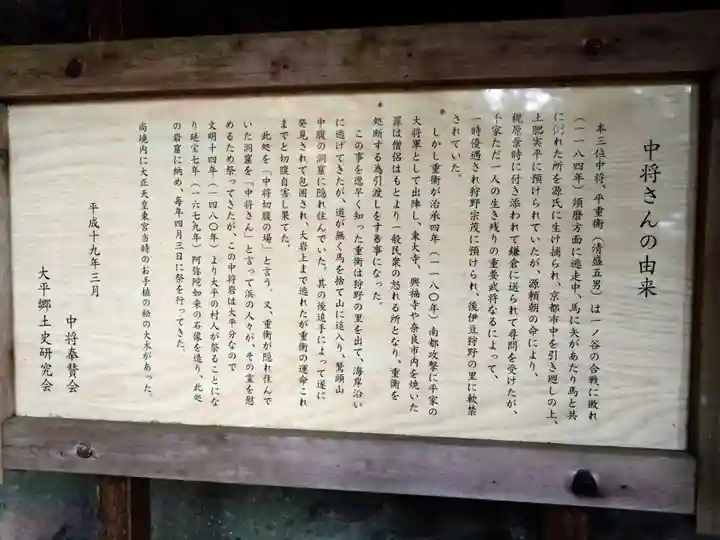 中将さんの由来
本三位中将、平重衡(清盛五男)は一ノ谷の合戦に敗れ
(一一八四年)須磨方面に逃走中、馬に矢があたり馬と共
に倒れた所を源氏に生け捕られ、京都市中を引き廻しの上、
土肥実平に預けられていたが、源頼朝の命により、
梶原景時に付き添われて鎌倉に送られて尋問を受けたが、
平家ただ一人の生き残りの重要武将なるによって、
一時優遇され狩野宗茂に預けられ、後伊豆狩野の里に軟禁
されていた。
しかし重衡が治承四年(一一八〇年)南都攻撃に平家の
大将軍として出陣し、東大寺、興福寺や奈良市内を焼いた
罪は僧侶はもとより一般民衆の怒れる所となり、重衡を
処断する為引渡しをす善事になった。
この事を逸早く知った重衡は狩野の里を出て、海岸沿い
に逃げてきたが、道が無く馬を捨て山に這入り、鷲頭山
中腹の洞窟に隠れ住んでいた。其の後追手によって遂に
発見されて包囲され、大岩上まで逃れたが重衡の運命これ
までと切腹自害し果てた。
此処を「中将切腹の場」と言う。又、重衡が隠れ住んで
いた洞窟を「中将さん」と言って浜の人々が、その霊を慰
めるため祭ってきたが、この中将岩は大平分なので
文明十四年(一四八〇年)より大平の村人が祭ることにな
り延宝七年(一六七九年)阿弥陀如来の石像を造り、此処
の岩窟に納め、毎年四月三日に祭を行ってきた。
尚境内に大正天皇東宮当時のお手植の松の大木があった。
平成十九年三月
中将奉賛会
大平郷土史研究会